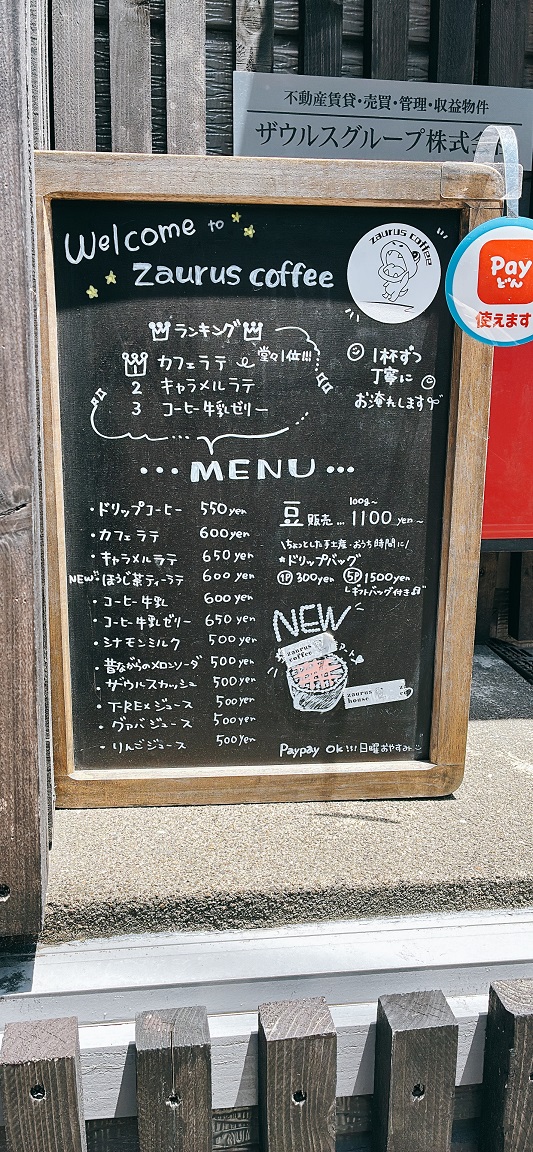 不動産賃貸・売買・管理・収益物件
ザウルスグループ株式会
Welcome to
zaurus coffee
zaurus coffee
Pay
どん
使えます
ランキング
カフェラテ 堂々1位!!!
2 キャラメルラテ
3 コーヒー牛乳ゼリー
1杯ずつ
丁寧に
お淹れします
...MENU...
・ドリップコーヒー 550yen
・カフェラテ 600yen
・キャラメルラテ 650yen
NEW・ほうじ茶ティーラテ 600yen
・コーヒー牛乳 600yen
・コーヒー牛乳ゼリー 650yen
・シナモンミルク 500yen
・昔ながらのメロンソーダ 500yen
・ザウルスカッシュ 500yen
・T-REXジュース 500yen
・グァバジュース 500yen
・りんごジュース 500yen
100g~
豆販売...1100yen~
\ちょっとした手土産・おうち時間に/
*ドリップバッグ
1P 300yen 5P 1500yen
ギフトバッグ付き
NEW
zaurus
coffee
zaurus
house
Paypay Ok!!! 日曜おやすみ